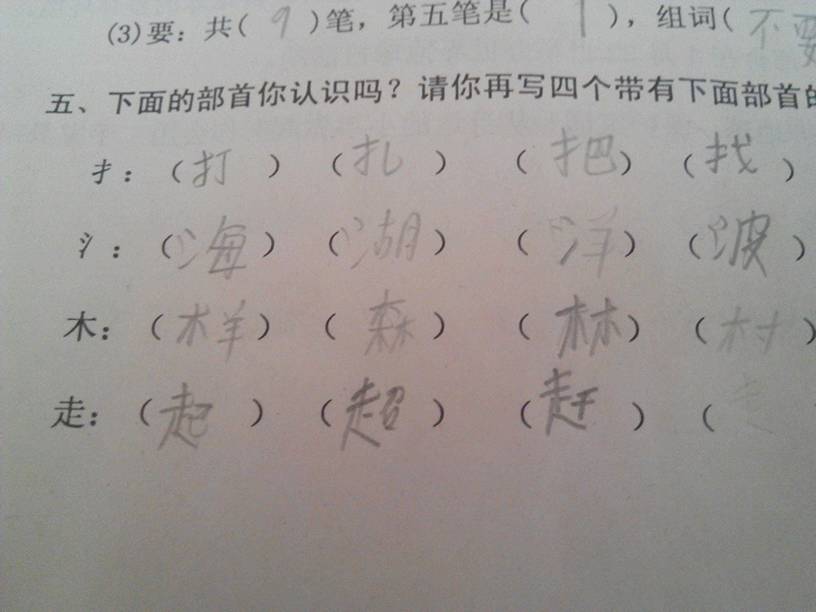 (3)要：共( 9 )笔，第五笔是( 丨 )，组词( 不要
五、下面的部首你认识吗？请你再写四个带有下面部首的
扌：（打）（扎）（把）（找）
氵：（海）（湖）（洋）（波）
木：（样）（森）（林）（村）
走：（起）（超）（赶）（